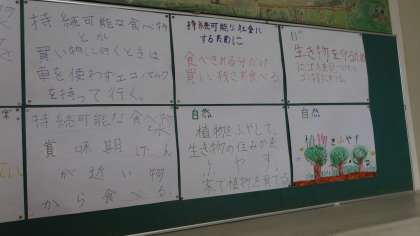 持続可能な食べ物
とか
買い物に行くときは
車を使わずエコバック
を持って行く。
持続可能な社会に
するために
食べきれる分だけ
買い、残さず食べる
生き物を守るために
持続可能な食べ物
賞味期げん
が近い物
から食べる。
自然
植物をふやして、
生き物の住みかを
ふやす
家で植物を育てる
自然
植物をふやす